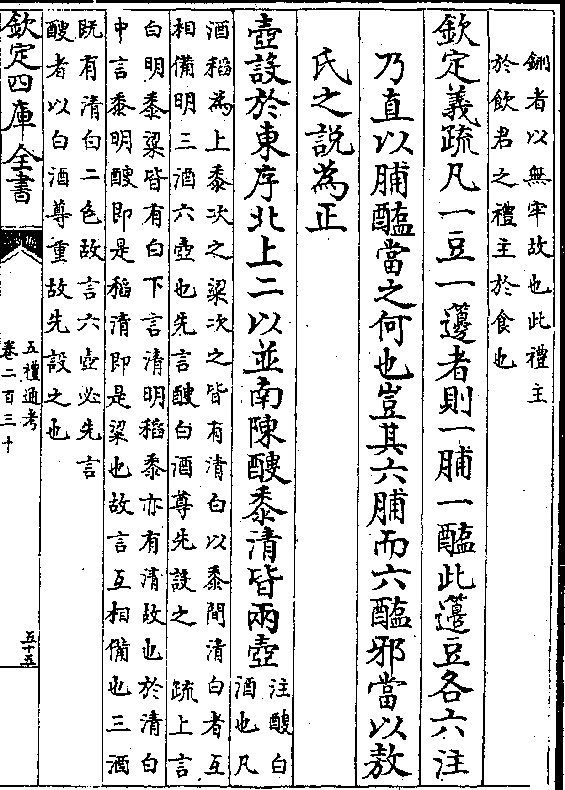 鉶者以無牢故也此禮主
於飲君之禮主於食也
欽定義疏凡一豆一籩者則一脯一醢此籩豆各六注
乃直以脯醢當之何也豈其六脯而六醢邪當以敖
氏之説為正
壺設於東序北上二以並南陳醙黍清皆兩壺
注醙白
酒也凡
酒稻為上黍次之粱次之皆有清白以黍間清白者互
相備明三酒六壺也先言醙白酒尊先設之 疏上言
白明黍粱皆有白下言清明稻黍亦有清故也於清白
中言黍明醙即是稻清即是粱也故言互相備也三酒
既有清白二色故言六壺必先言
醙者以白酒尊重故先設之也
欽定四庫全書
五禮通考
卷二百三十
五十五